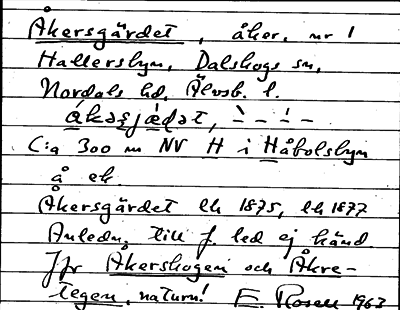 Åkersgärdet, åker, nr 1
Hallersbyn, Dalskogs sn,
Nordals hd, Älvsb. l.
åkasjädat, – – –
C:a 300 m NV H i Håbolsbyn
å ek
Åkersgärdet lh 1875, lh 1877
Anledn. till f. led ej känd
Jfr Åkerskogen och Åkre-
tegen, naturn! E. Rosell 1963